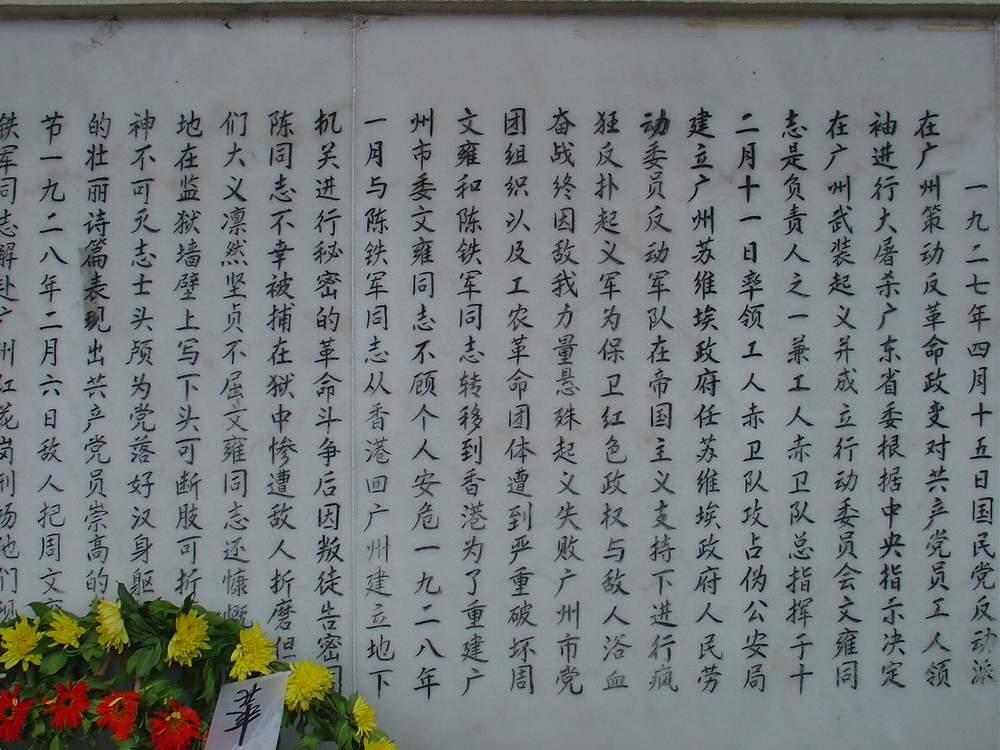 一九二七年四月十五日国民党反动派
在广州策动反革命政变对共产党员工人领
袖进行大屠杀广东省委根据中央指示决定
在广州武装起义并成立行动委员会文雍同
志是负责人之一兼工人赤卫队总指挥于十
二月十一日率领工人赤卫队攻占伪公安局
建立广州苏维埃政府任苏维埃政府人民劳
动委员反动军队在帝国主义支持下进行疯
狂反扑起义军为保卫红色政权与敌人浴血
奋战终因敌我力量悬殊起义失败广州市党
团组织以及工农革命团体遭到严重破坏周
文雍和陈铁军同志转移到香港为了重建广
州市委文雍同志不顾个人安危一九二八年
一月与陈铁军同志从香港回广州建立地下
机关进行秘密的革命斗争后因叛徒告密
陈同志不幸被捕在狱中惨遭敌人折磨但
们大义凛然坚贞不屈文雍同志还慷慨
地在监狱墙壁上写下头可断肢可折
神不可灭志士头颅为党落好汉身躯
的壮丽诗篇表现出共产党员崇高的
节一九二八年二月六日敌人把周文
铁军同志解赴广州红花岗刑场他们